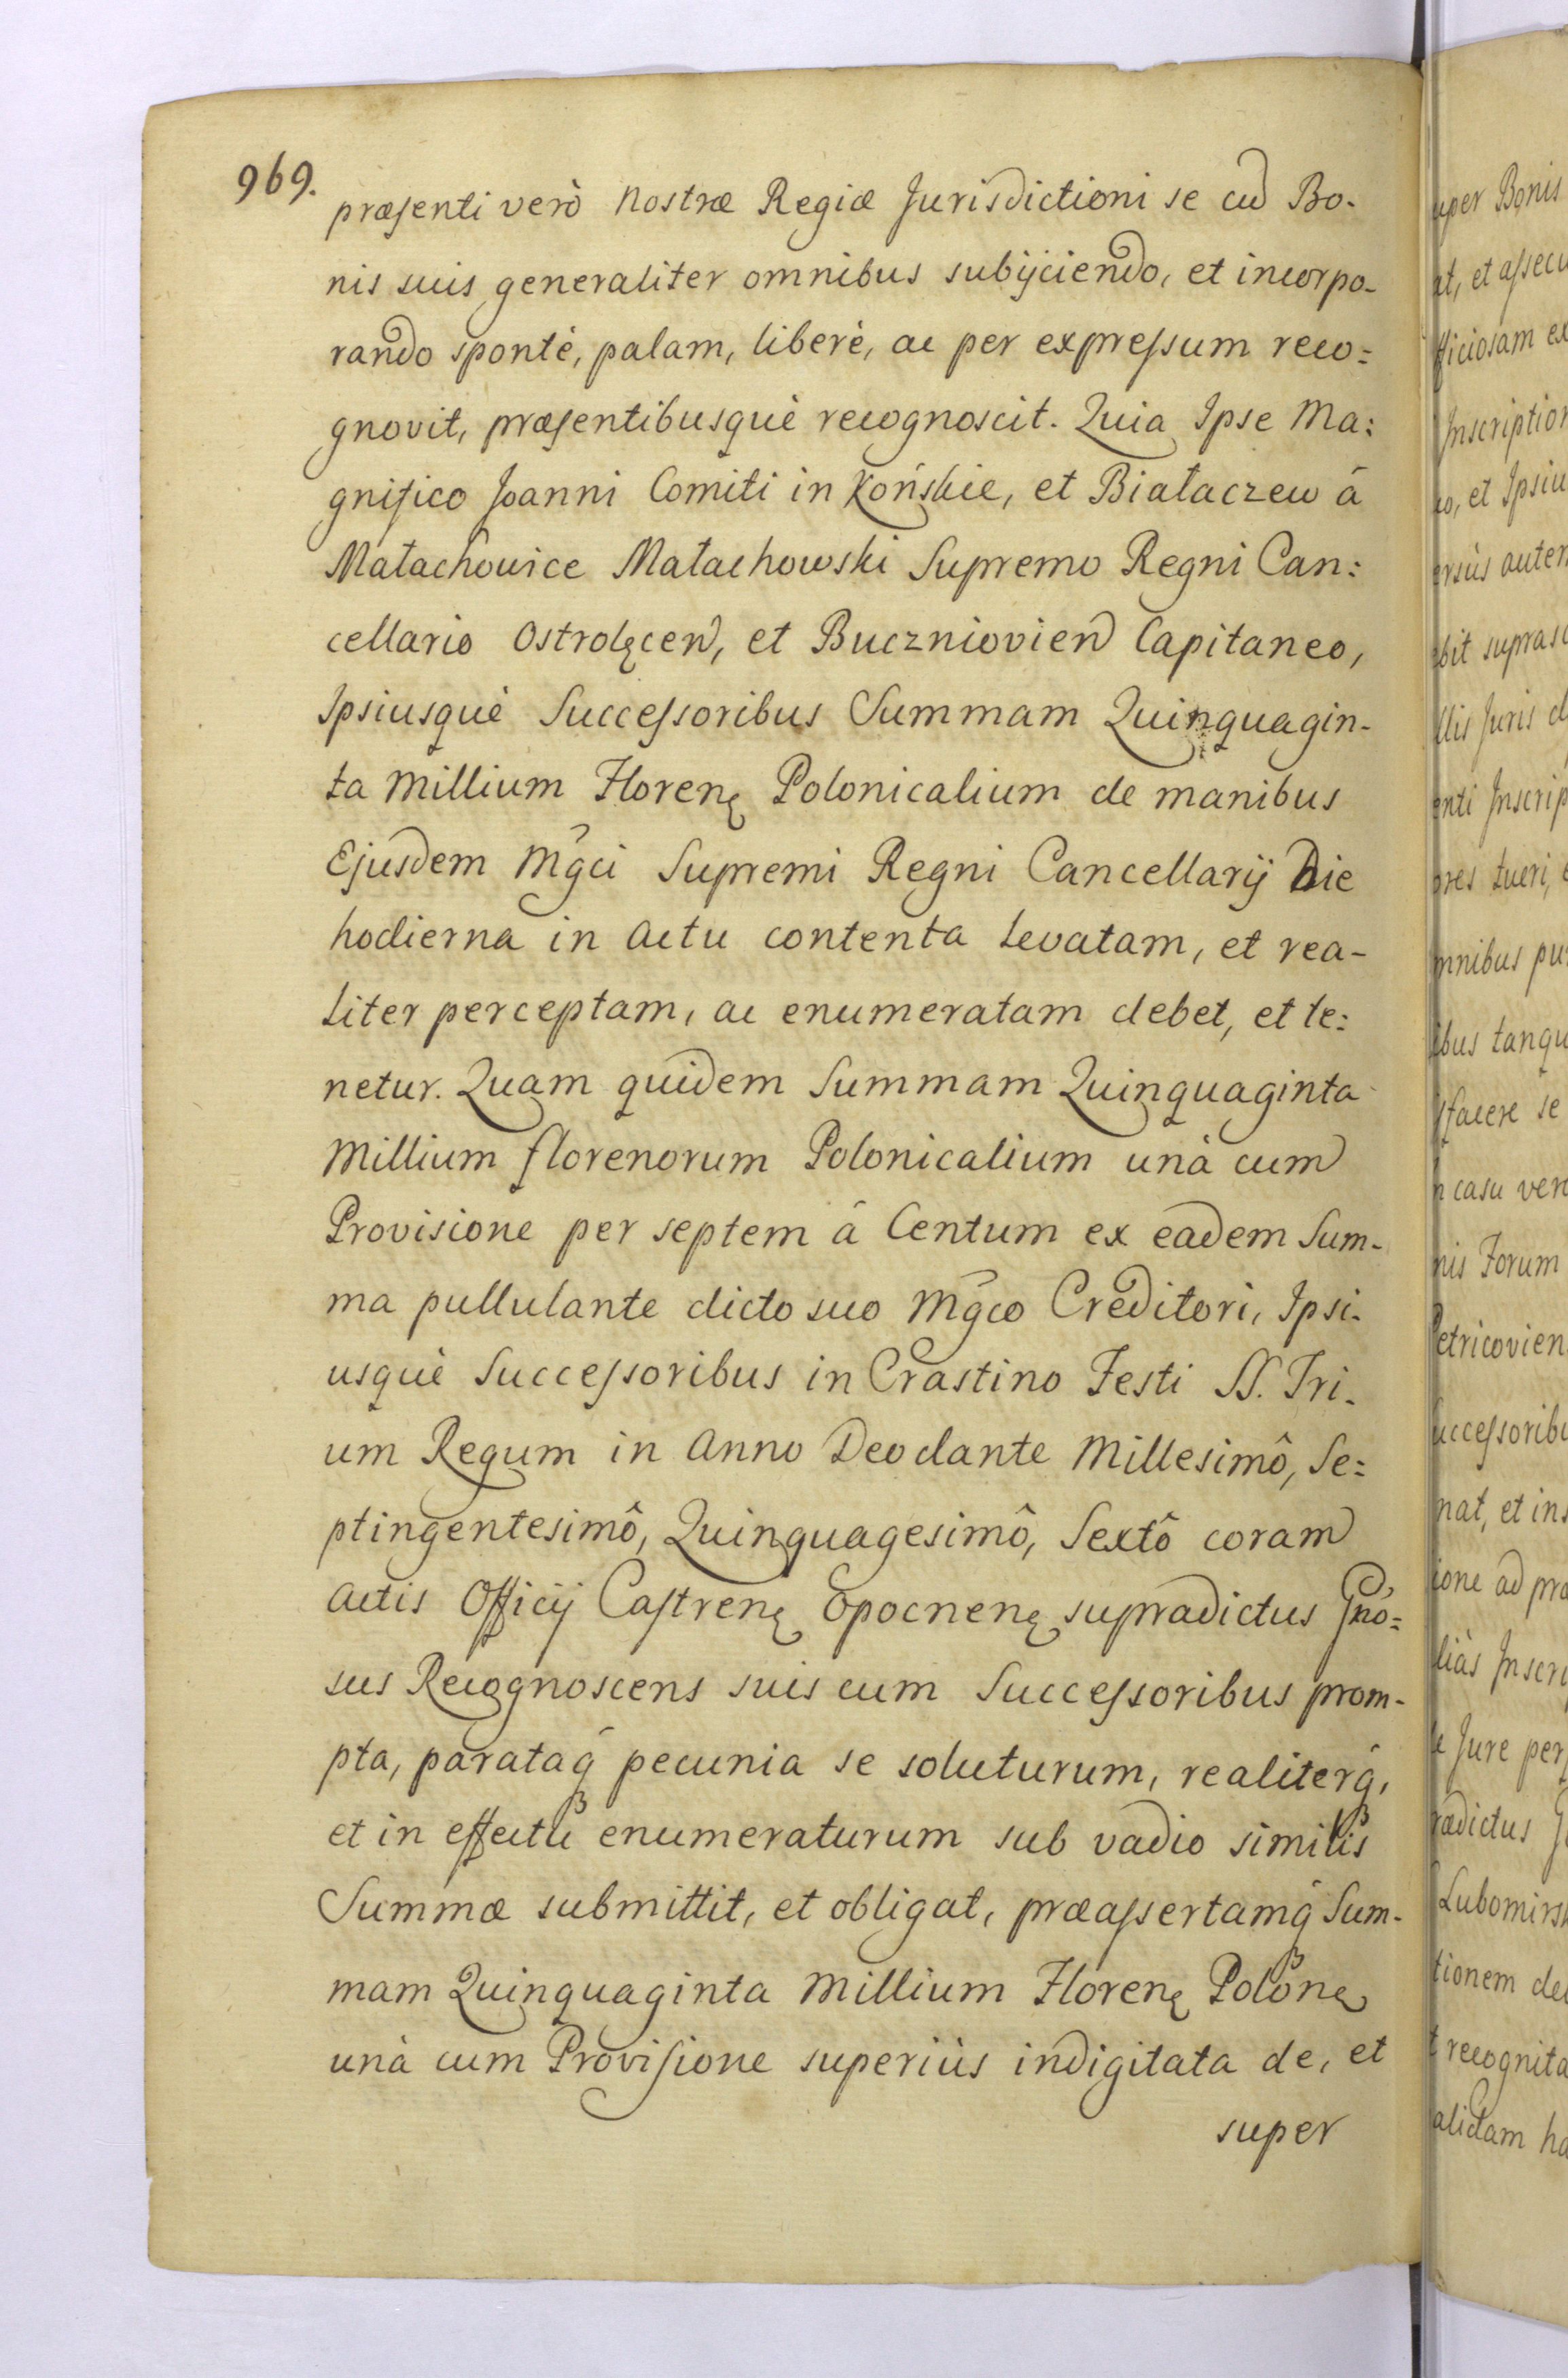 969.
præsenti verò Nostræ Regiæ Jurisdictioni se cũ Bo-
nis suis generaliter omnibus subijciendo, et incorpo-
rando spontè, palam, liberè, ac per expressum reco=
gnovit, præsentibusquè recognoscit. Quia Ipse Ma=
gnifico Joanni Comiti in Końskie, et Białaczew â
Małachowice Małachowski Supremo Regni Can=
cellario Ostrolęcen, et Buczniovien Capitaneo,
Ipsiusquè Successoribus Summam Quinquagin-
ta Millium Florenę Polonicalium de manibus
Ejusdem Mgci Supremi Regni Cancellarij Die
hodierna in Actu contenta levatam, et rea-
liter perceptam, ac enumeratam debet, et te=
netur. Quam quidem Summam Quinquaginta
Millium florenorum Polonicalium unà cum
Provisione per septem â Centum ex eadem Sum-
ma pullulante dicto suo Mgco Creditori, Ipsi-
usquè Successoribus in Crastino Festi SS. Tri-
um Regum in Anno Deo dante Millesimô, Se=
ptingentesimô, Quinquagesimô, Sextô coram
Actis Officij Castrenę Opocnenę supradictus Gno=
sus Recognoscens suis cum Successoribus prom-
pta, parataq́ pecunia se soluturum, realiterq́,
et in effectu enumeraturum sub vadio similis
Summæ submittit, et obligat, præassertamq́ Sum-
mam Quinquaginta Millium Florenę Polonę
unà cum Provisione superiùs indigitata de, et
super
uper Bonis
at, et assecu
fficiosam ex
Inscription
co, et Ipsiu
ersùs autem
ebit suprasc
llis Juris d
enti Inscrip
ores tueri, e
mnibus pu
ibus tanqu
sfacere se
n casu vero
nis Forum
Petricovien
Successoribu
nat, et ins
ione ad pra
liàs Inscri
e Jure per
rædictus G
Lubomirsk
tionem de
t recognita
alidam ha